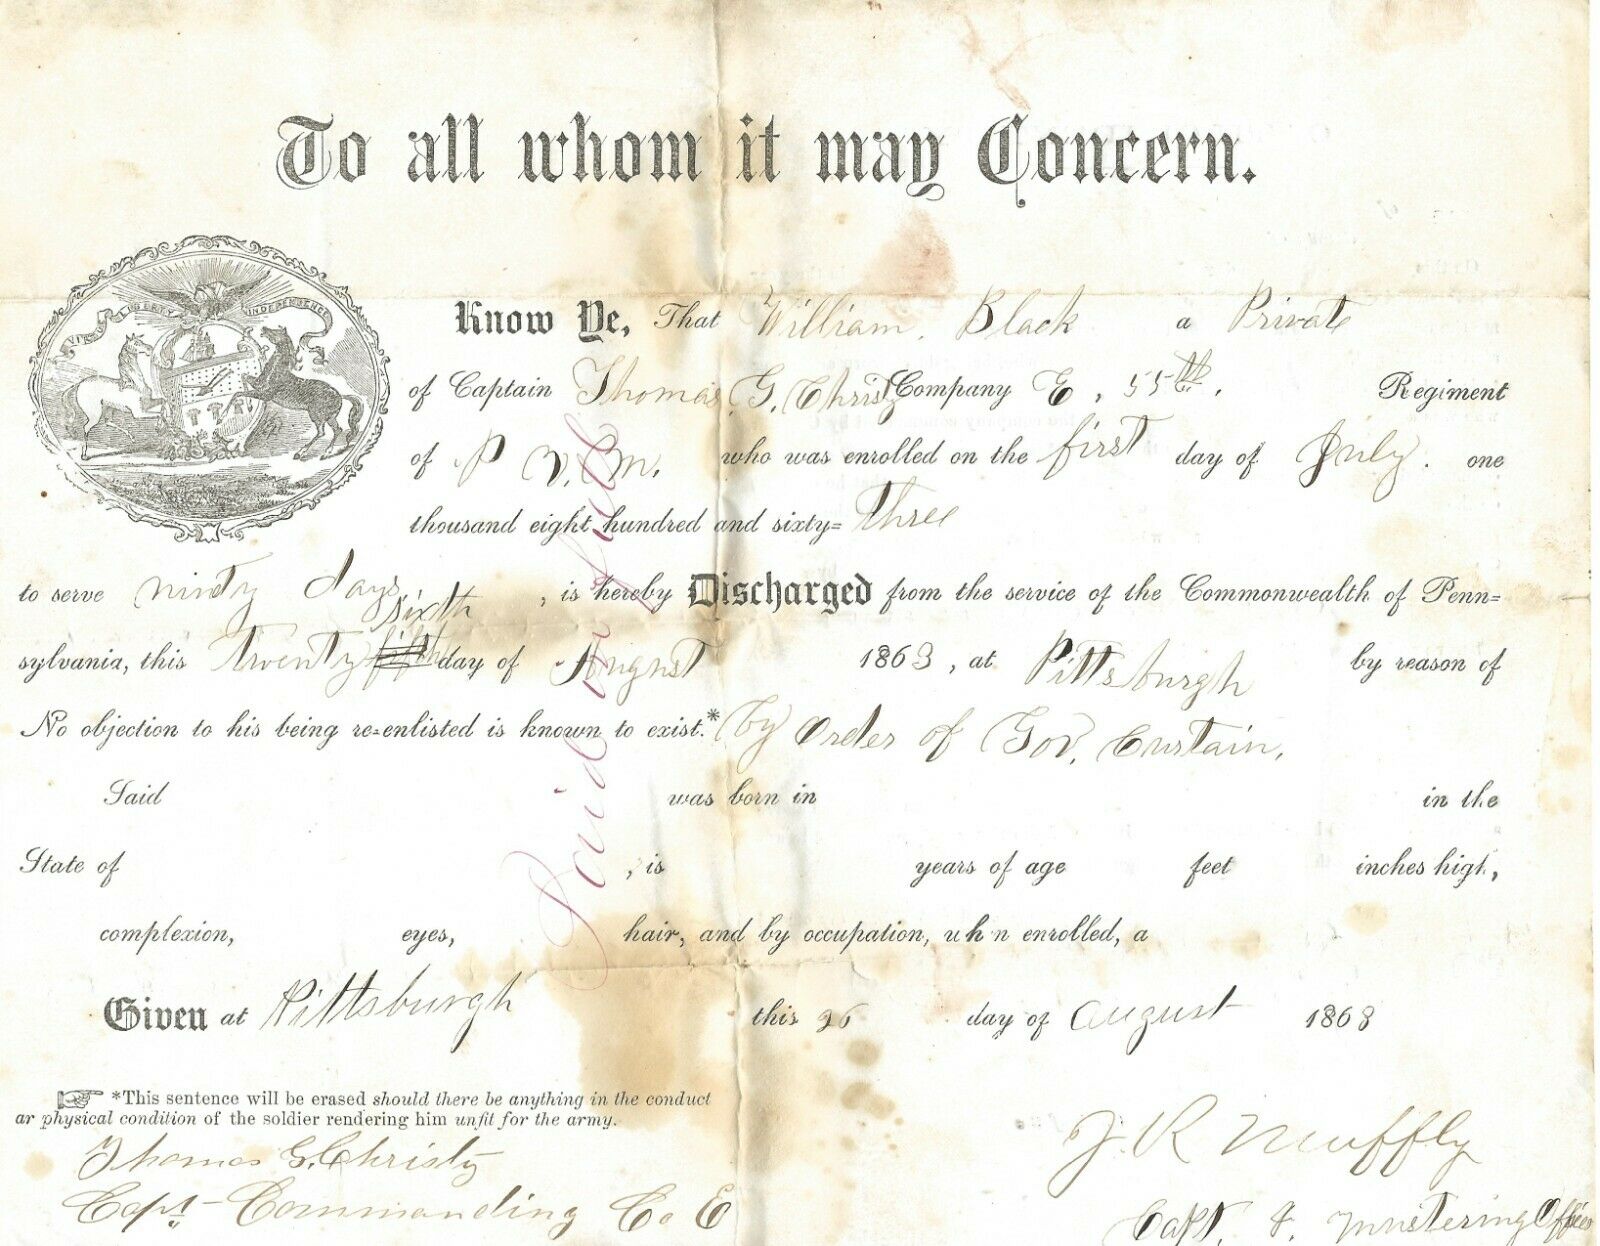 To all whom it may Concern.
VIRTUE LIBERTY INDEPENDENCE
Know Ye, That William Black a Private
of Captain Thomas G. Christy Company E, 55th, Regiment
of P V. M. who was enrolled on the first day of July. one
thousand eight hundred and sixty= three
to serve ninty days, is hereby Discharged from the service of the Commonwealth of Penn=
sixth
sylvania, this Twenty fifth day of August 1863, at Pittsburgh by reason of
No objection to his being re=enlisted is known to exist.* By order of Gov. Curtain.
Said was born in in the
State of , is years of age feet inches high,
complexion, eyes, hair, and by occupation, wh n enrolled, a
Given at Pittsburgh this 26 day of August 1863
*This sentence will be erased should there be anything in the conduct
ar physical condition of the soldier rendering him unfit for the army.
Thomas G. Christy
Capt- Commanding Co E
J R Muffly
Capt. & Mustering Officer
Paid in full